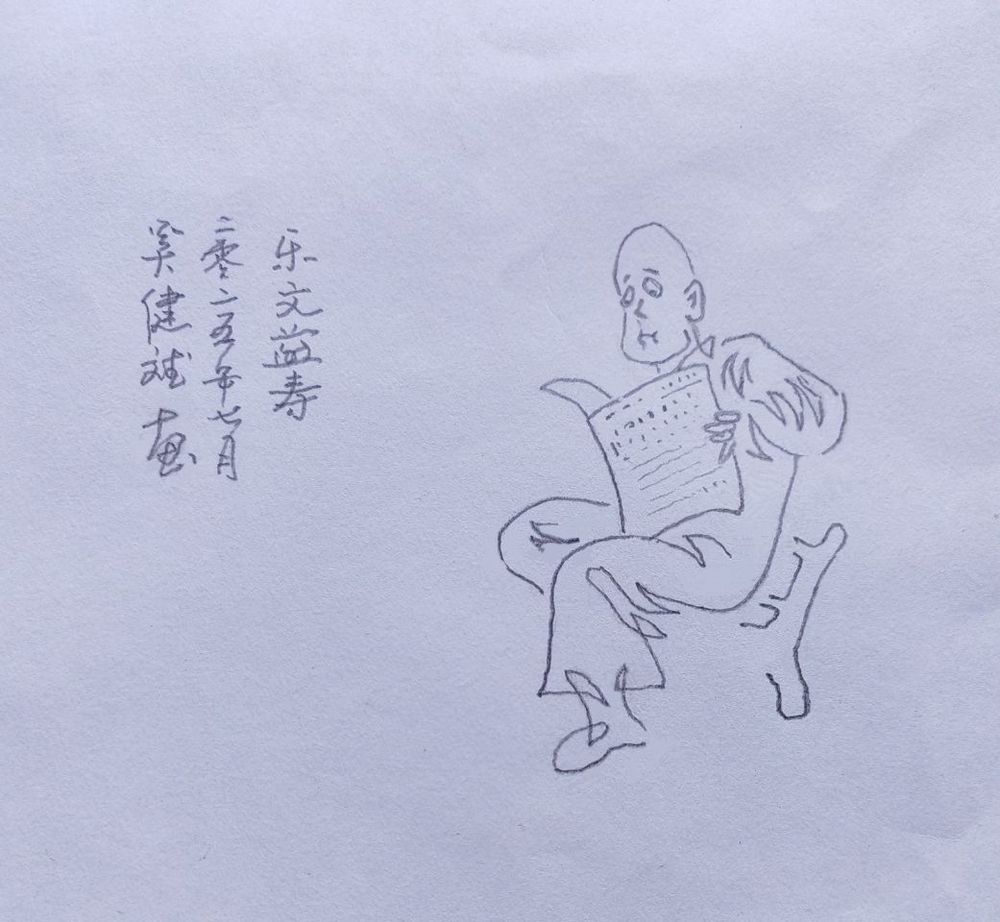 乐文益寿
二零二五年七月
吴健斌画